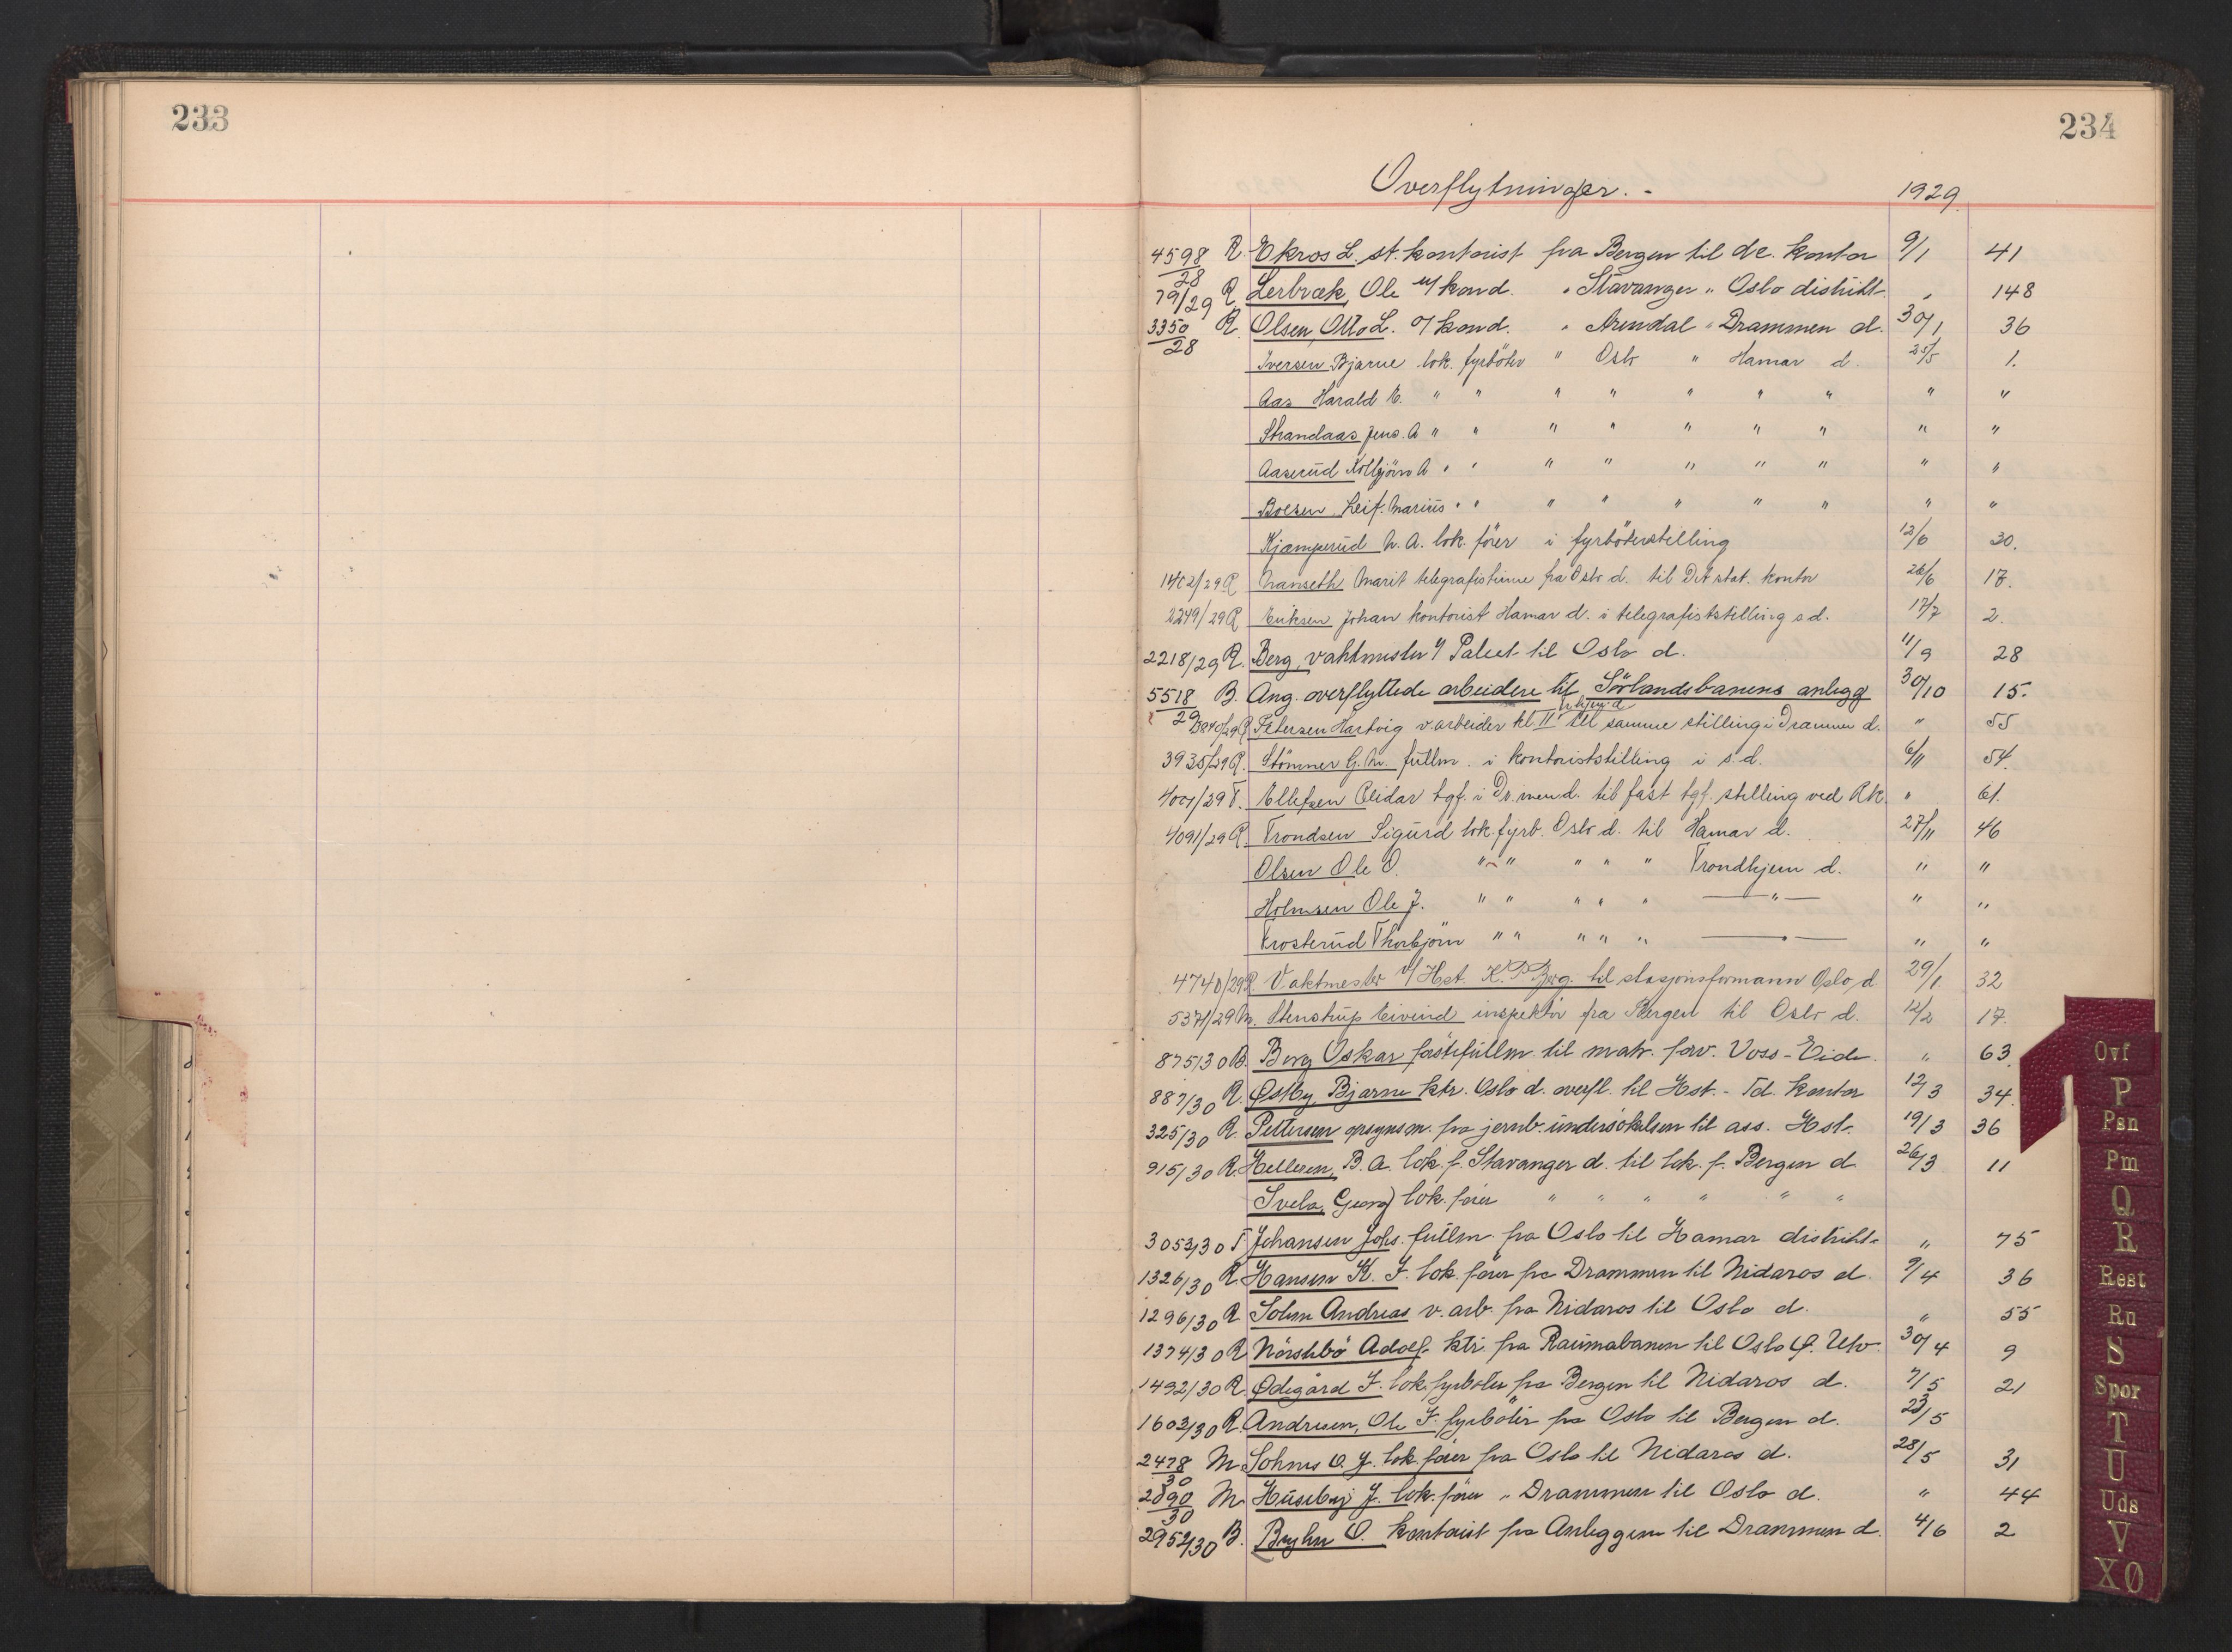 233
234
Overflytninger. -
1929.
4598/28 R. Ekros L. st. kontorist fra Bergen til de. kontor 9/1 41
79/29 R Lerbræk, Ole u/kond. " Stavanger " Oslo distrikt " 148
3350/28 R. Olsen, Otto L. o/kond. " Arendal " Drammen d. 30/1 36
Iversen Bjarne lok. fyrböter " Oslo " Hamar d. 25/5 1.
Aas Harald E. " " " " " " " " "
Strandaas Jens. A " " " " " " " " "
Aaserud Kolbjörn A " " " " " " " " "
Boesen Leif. Marius " " " " " " " " "
Kjæmperud A. lok. förer i fyrböterstilling 12/6 30.
1402/29 R Nanseth Marit telegrafistinne fra Oslo d. til Det stat. kontor 26/6 17.
2249/29 R Eriksen Johan kontorist Hamar d. i telegrafiststilling s.d. 17/7 2.
2218/29 R. Berg, vaktmester i/ Paleet til Oslo d. 11/9 28
5518/29 B. Ang. overflyttede arbeidere til Sörlandsbanens anlegg 30/10 15.
R Petersen Hartvig v.arbeider kl II til samme stilling i Drammen d. " 55
3935/29 R. Stömner G. M. fullm. i kontoriststilling i s.d. 6/11 54.
/29 T. Ellefsen Olidar tgf. i Dr.men d. til fast tgf. stilling ved Ak. " 61.
4091/29 R. Trondsen Sigurd lok. fyrb. Oslo d. til Hamar d. 27/11 46
Olsen Ole O. " " " " " Trondhjem d. " "
Holmsen Ole J. " " " " " — " — " "
Krosterud Thorbjörn " " " " " — " — " "
4740/29 R. Vaktmester v/ Hst. K. P. Berg. til stasjonsformann Oslo d 29/1 32
5371/29 M. Stenstrup Eivind inspektör fra Bergen til Oslo d. 12/2 17.
875/30 B. Berg Oskar förstefullm. til matr. forv. Voss-Eide. " 63
887/30 R. Østby, Bjarne ktr. Oslo d. overfl. til Hst. - Td. kontor 12/3 34.
325/30 R. Pettersen opsynsm. fra jernb. undersökelsen til ass. Hst. 19/3 36
915/30 R. Hellesen, B. A. lok. f. Stavanger d. til lok. f. Bergen d 26/3 11
Svela, Georg lok. förer " " " " " "
3053/30 T. Johansen Johs. fullm. fra Oslo til Hamar distrikt " 75
1326/30 R. Hansen K. F. lok. förer fra Drammen til Nidaros d. 9/4 36
1296/30 R Solem Andreas v. arb. fra Nidaros til Oslo d. " 55
1374/30 R Nörstebö Adolf ktr. fra Raumabanen til Oslo 30/4 9
1492/30 R. Ødegård F. lok.fyrböter fra Bergen til Nidaros d. 7/5 21
1603/30 R. Andresen, Ole F. fyrböter fra Oslo til Bergen d. 23/5
2478/30 M. Sohnes O. J. lok. förer fra Oslo til Nidaros d. 28/5 31
2890/30 M. Huseby J. lok. förer " Drammen til Oslo d. " 44
2952/30 B. Bryhn O. kontorist fra Anleggene til Drammen d. 4/6 2
Ovf
P
Psn
Pm
Q
R
Rest
Ru
S
Spor
T
U
Uds
V
XØ